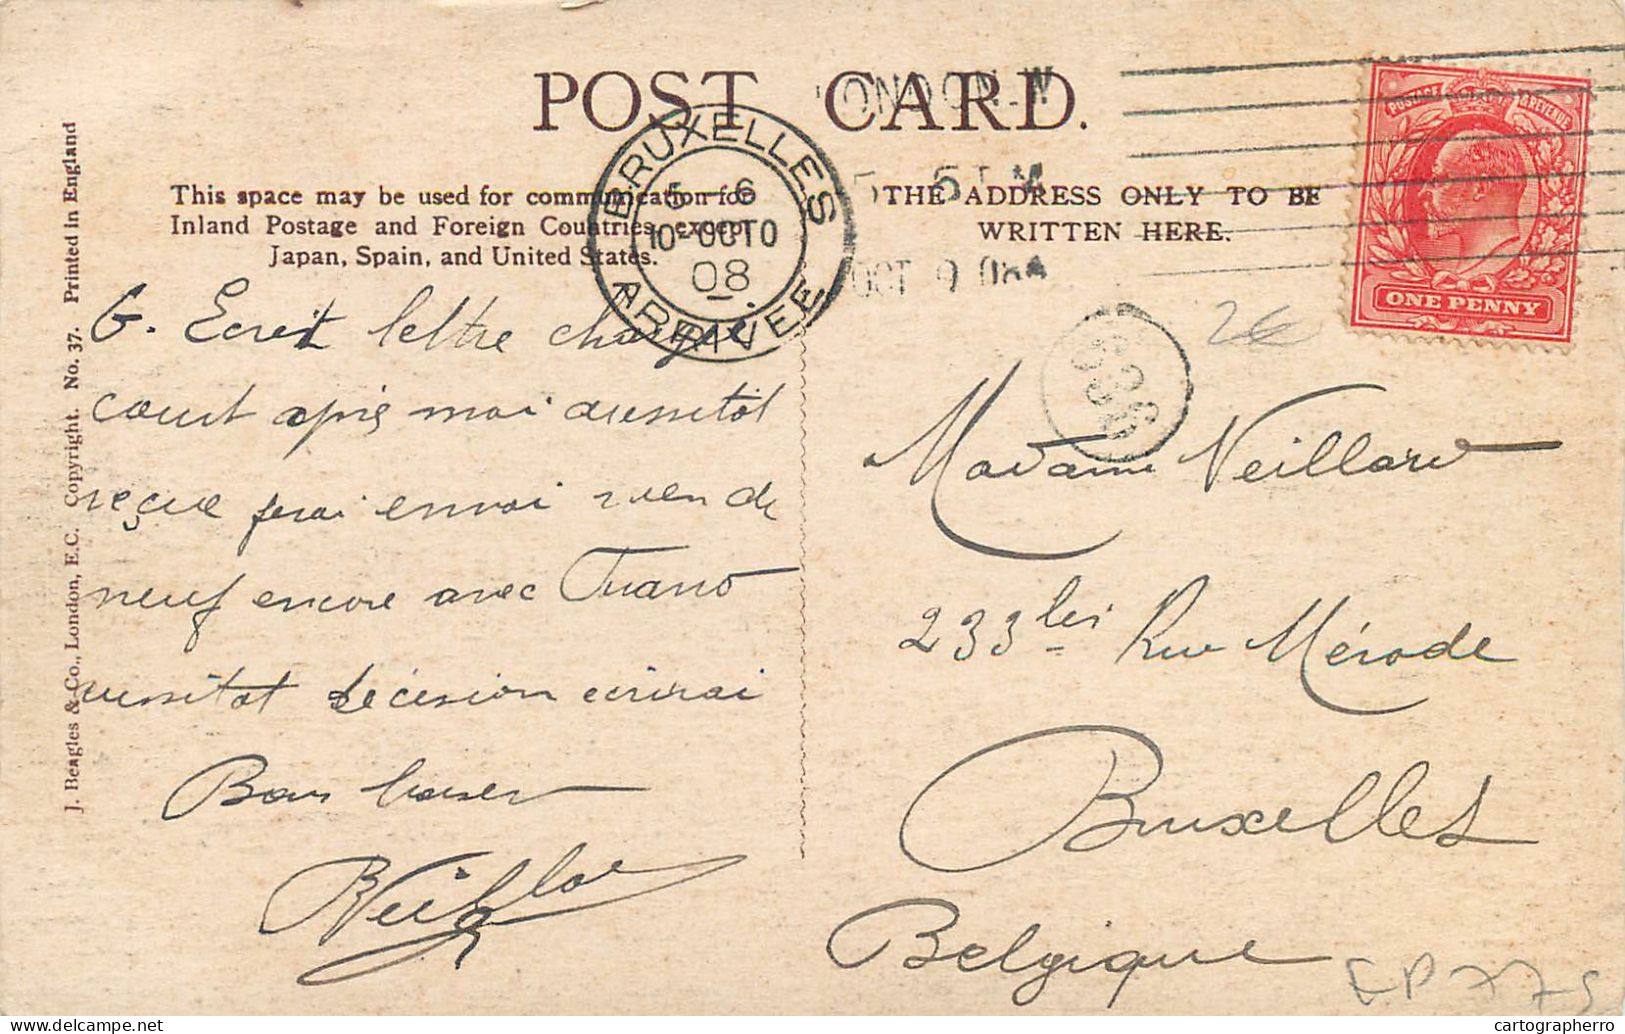 POST CARD.
LONDON. W
5 15 PM
OCT 9 08
BRUXELLES
5 - 6
10 - OCTO
08
ARRIVEE
POSTAGE & REVENUE
ONE PENNY
This space may be used for communication for
Inland Postage and Foreign Countries, except
Japan, Spain, and United States.
THE ADDRESS ONLY TO BE
WRITTEN HERE.
J. Beagles & Co., London, E.C. Copyright. No. 37. Printed in England
G. Ecrit lettre chargé
court après moi aussitot
reçue ferai envoi rien de
neuf encore avec
aussitot décision ecrirai
Bons baisers
Veillard
26
Madame Veillard
233 bis Rue Mérode
Bruxelles
Belgique
EP 775
cartographerro